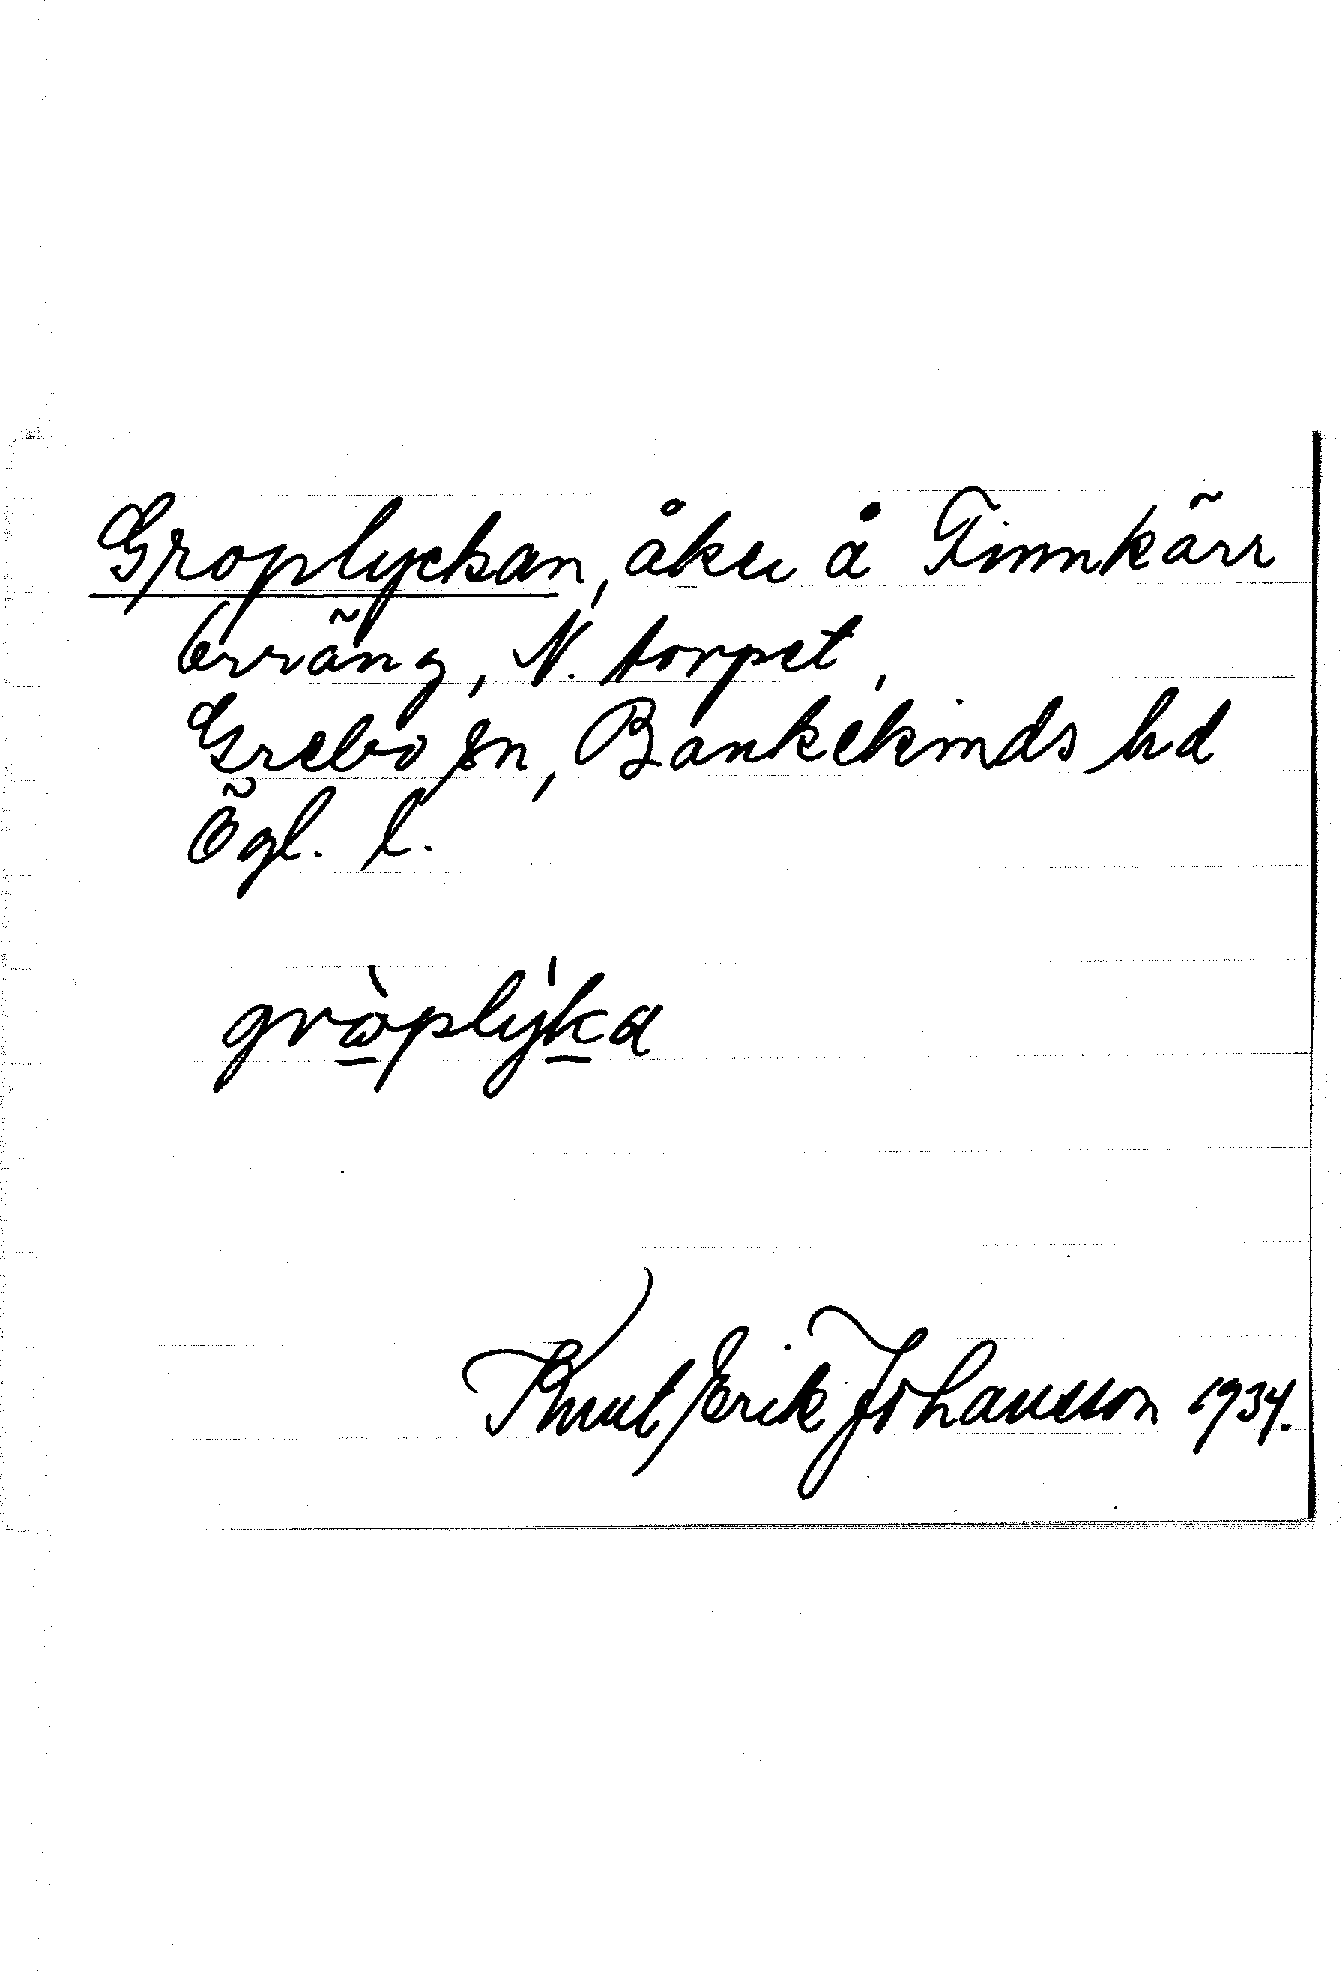 Groplyckan, åker å Finnkärr
Orräng, N. torpet,
Grebo sn, Bankekinds hd
Ögl. l.
grⱥ̀plýka
Knut Erik Johansson 1934.